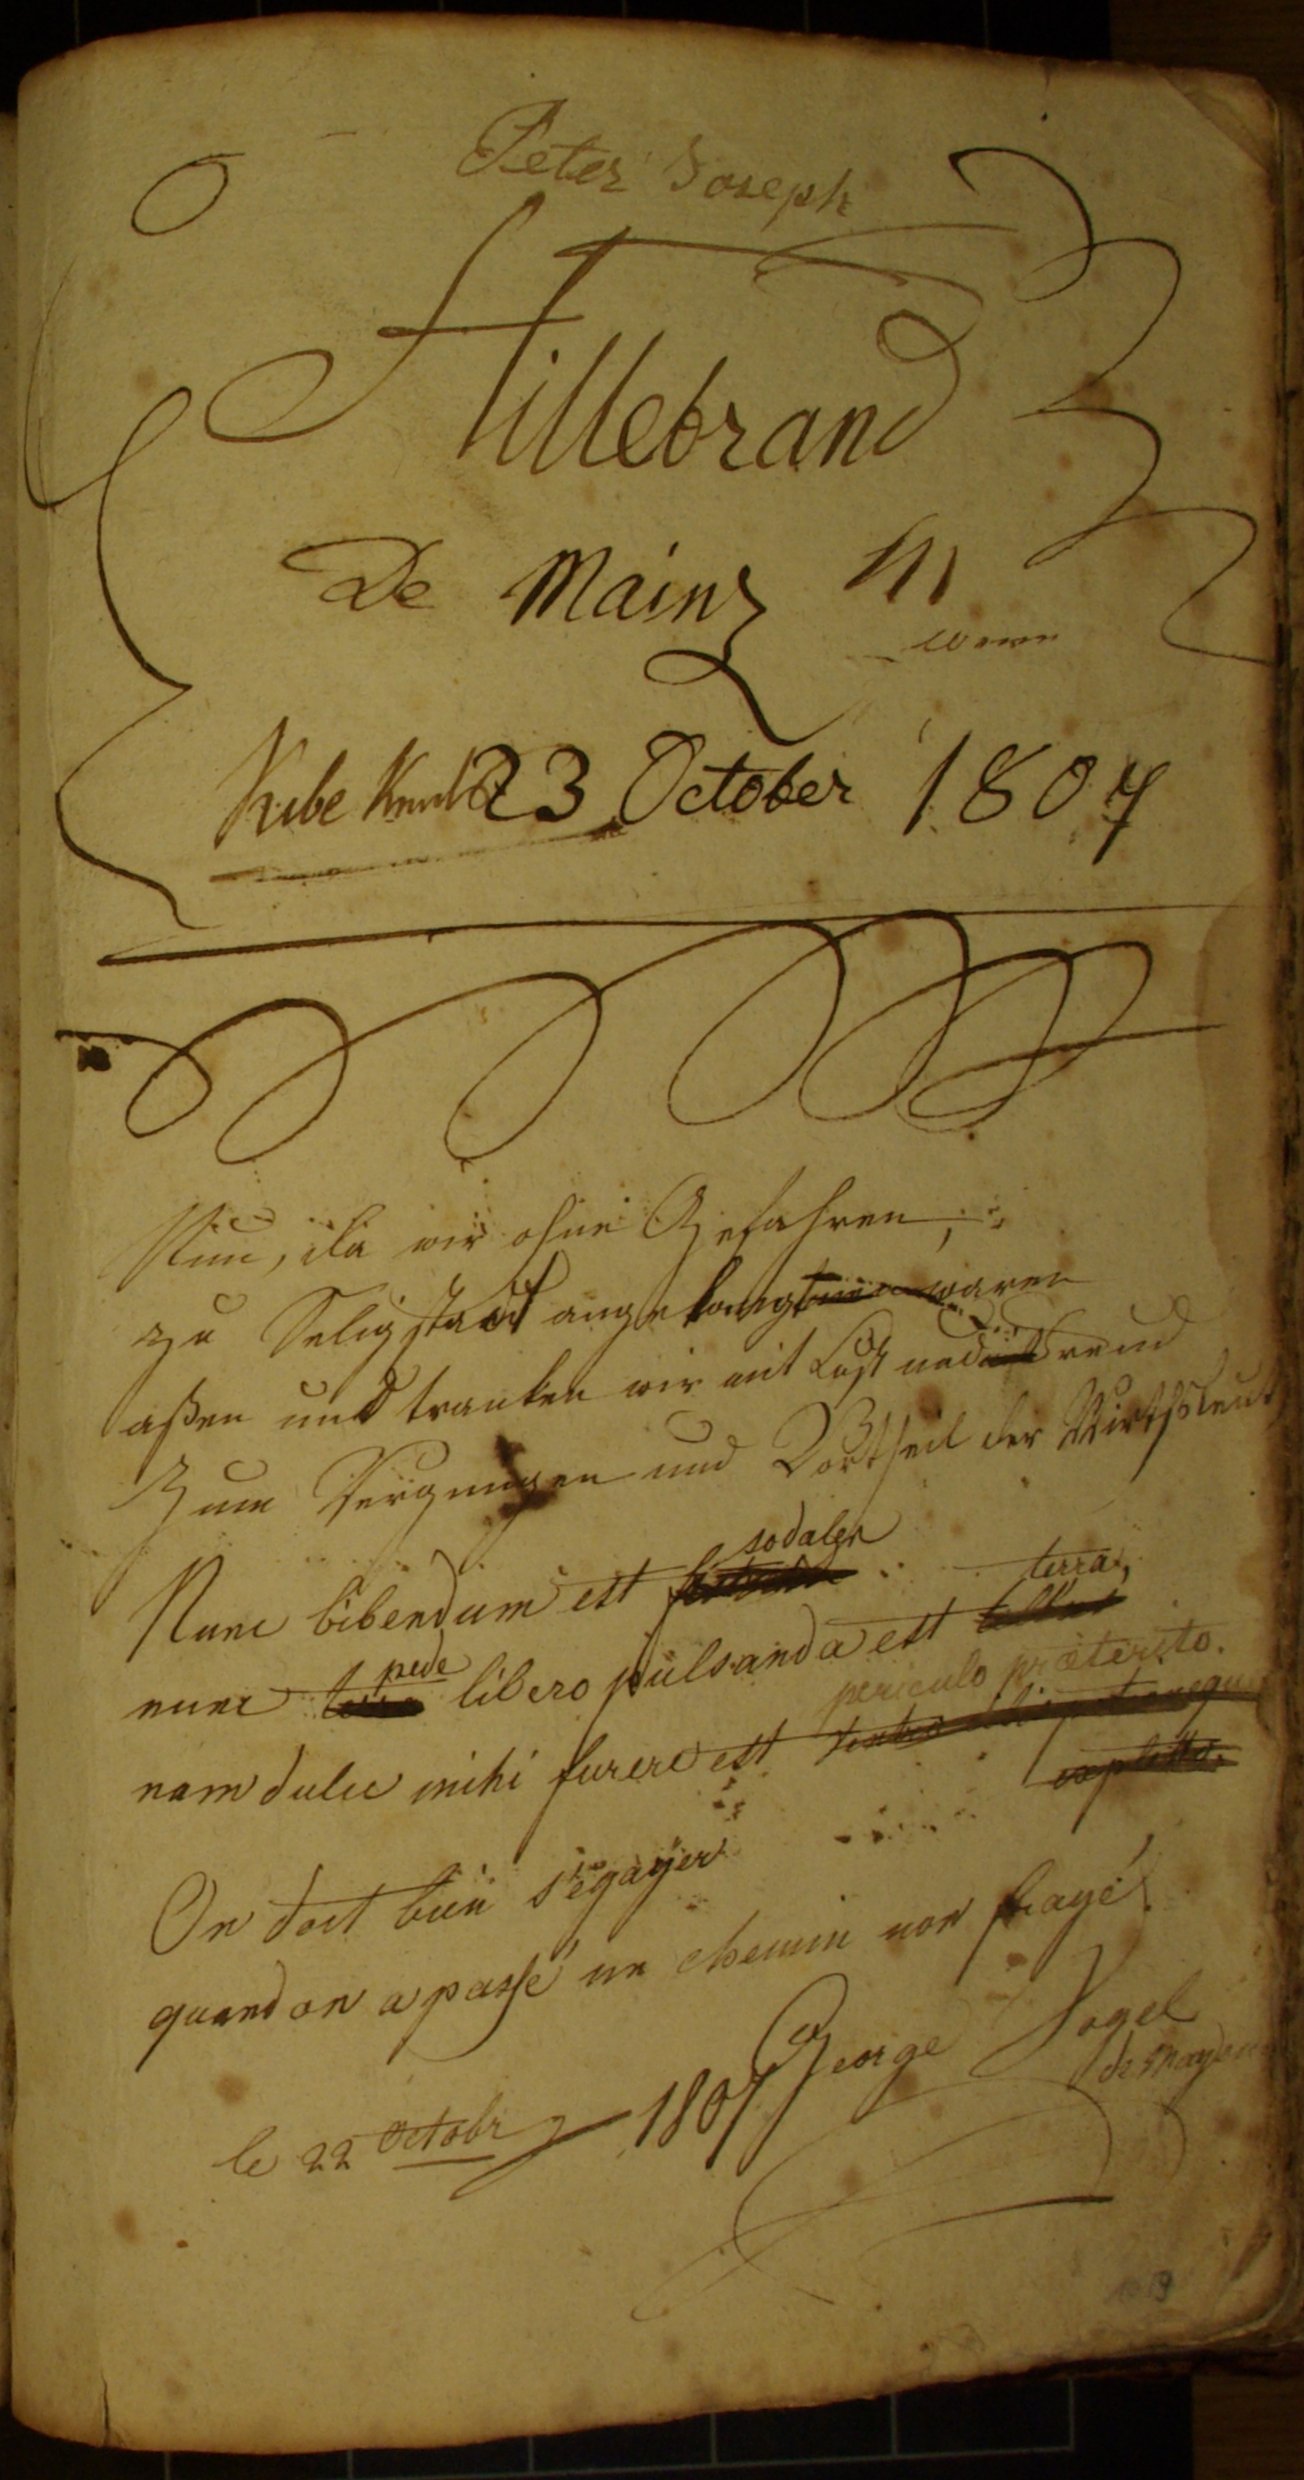 Peter Joseph
Hillebrand
De Mainz
23 October 1807
Nun, da wir ohne Gefahren,
zu Seligstadt angelangt waren
aßen und tranken wir mit Lust und Freud
Zum Vergnügen und Vortheil der Wirthsleut
sodales
Nunc bibendum est
terra,
pede
nunc libero pulsanda est
periculo præterito.
nam dulce mihi furere est
On doit bien s'égayer
quand on a passé un chemin non frayé.
George Vogel
le 22 Octobr 1807